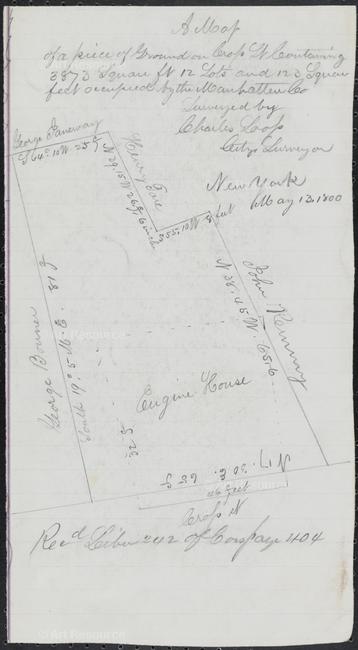 A Map
of a piece of Ground on Cross St Containing
3873 Square ft 12 Lots and 123 Square
feet occupied by the Manhatten Co
Surveyed by
Charles Loss
City Surveyor
New York
May 13, 1800
George Janeway
S 64° 10 W 25 f
Henry
N 29. 15 W 26 f 6 inch
S 55. 10 W 8 feet
John Remmy
N 28. 45 W 65.6
George Bonner 81 f
South 19° 5 E
32 f
Engine House
N 17 30 E. 63 f
46 feet
Cross St
Rec'd Liber 242 of Con page 404
© Art Resource